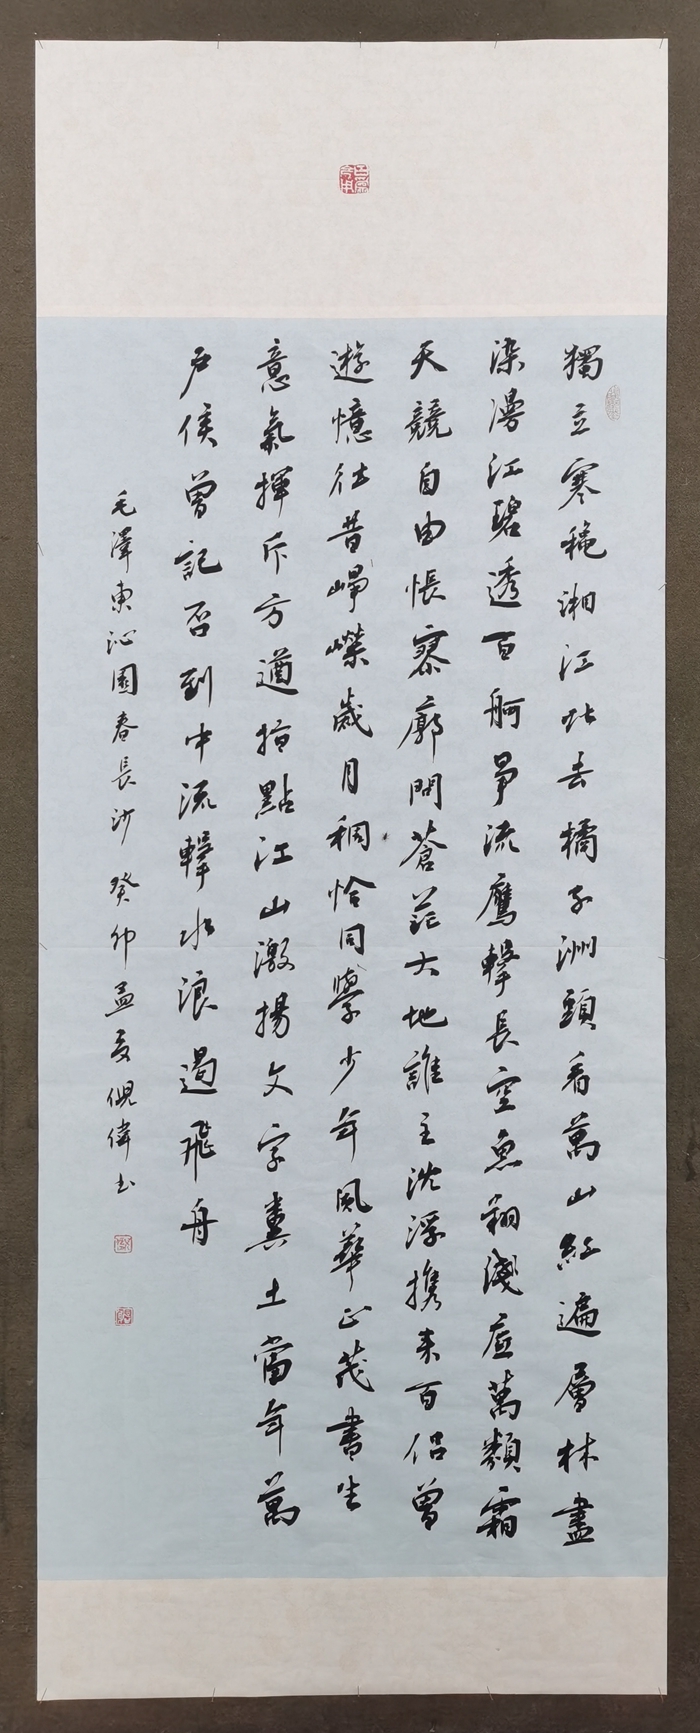 獨立寒秌湘江北去橘子洲頭看萬山紅遍層林盡
染漫江碧透百舸爭流鷹擊長空魚翔淺底萬類霜
天競自由悵寥廓問蒼茫大地誰主沈浮攜來百侶曾
遊憶往昔崢嶸歲月稠恰同學少年風華正茂書生
意氣揮斥方遒指點江山激揚文字糞土當年萬
戶侯曾記否到中流擊水浪遏飛舟
毛澤東沁園春長沙癸卯孟夏倪偉书